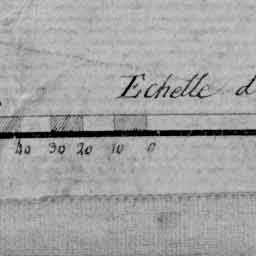 Echelle d
40 30 20 10 0